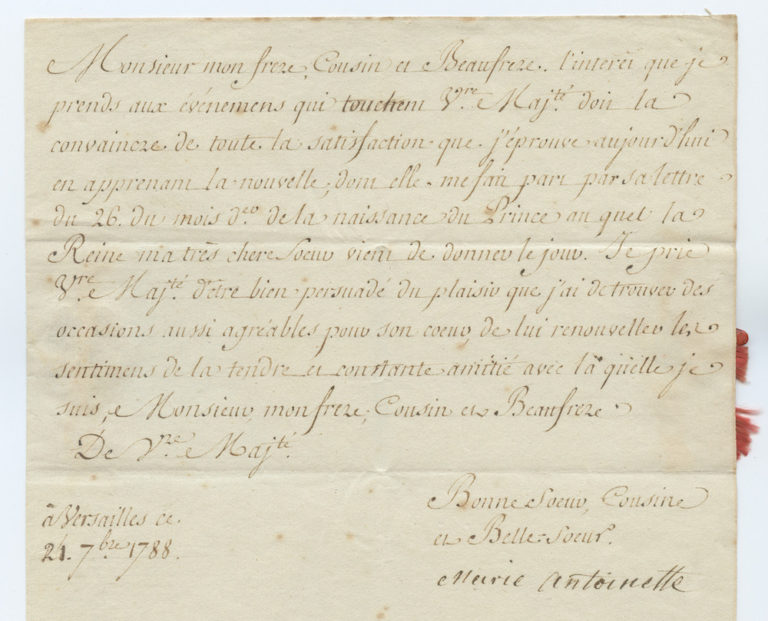 Monsieur mon frere, Cousin et Beaufrere. l'interêt que je
prends aux événemens qui touchent V.re Maj.té doit la
convaincre de toute la satisfaction que j'éprouve aujourd'hui
en apprenant la nouvelle, dont elle me fait part par sa lettre
du 26. du mois d.er de la naissance du Prince au quel la
Reine ma très chere Soeur vient de donner le jour. Je prie
V.re Maj.té d'être bien persuadé du plaisir que j'ai de trouver des
occasions aussi agréables pour son coeur, de lui renouveller les
sentimens de la tendre et constante amitié avec la quelle je
suis, Monsieur, mon frere, Cousin et Beaufrere
De V.re Maj.té
Bonne Soeur, Cousine
et Belle-Soeur.
Marie Antoinette
à Versailles ce
24. 7.bre 1788.